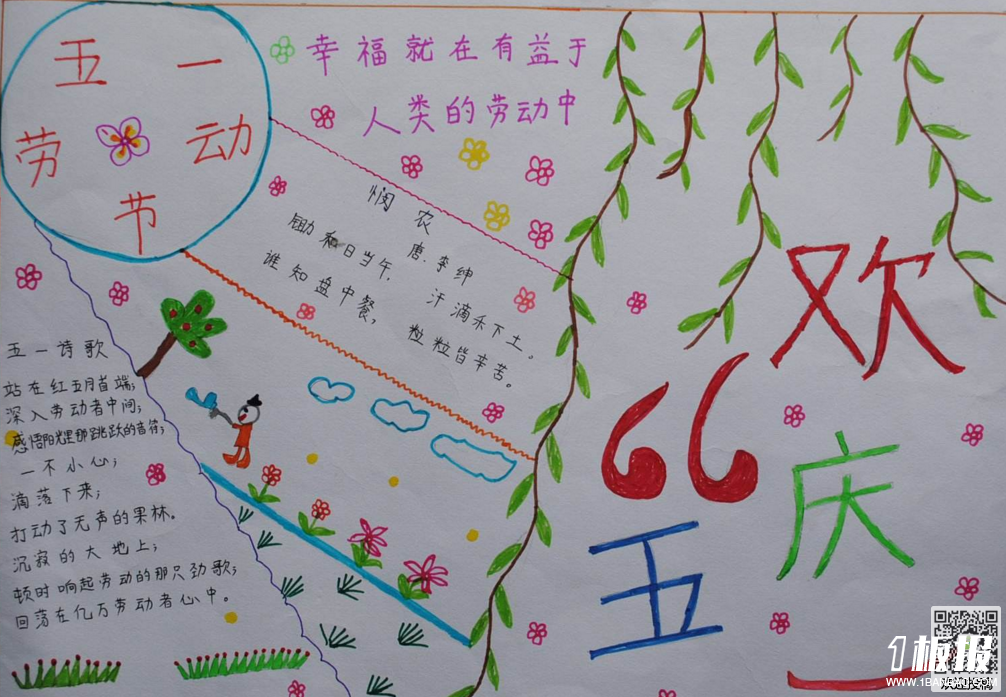 五 一
劳 动
节
幸福就在有益于
人类的劳动中
悯 农
唐.李绅
锄和日当午， 汗滴禾下土。
谁知盘中餐， 粒粒皆辛苦。
五一诗歌
站在红五月首端；
深入劳动者中间；
感悟阳光里那跳跃的音符；
一不小心；
滴落下来；
打动了无声的果林。
沉寂的大地上；
顿时响起劳动的那只劲歌；
回荡在亿万劳动者心中。
欢
庆
“
五
一
1板报
WWW.1BANBAO.COM